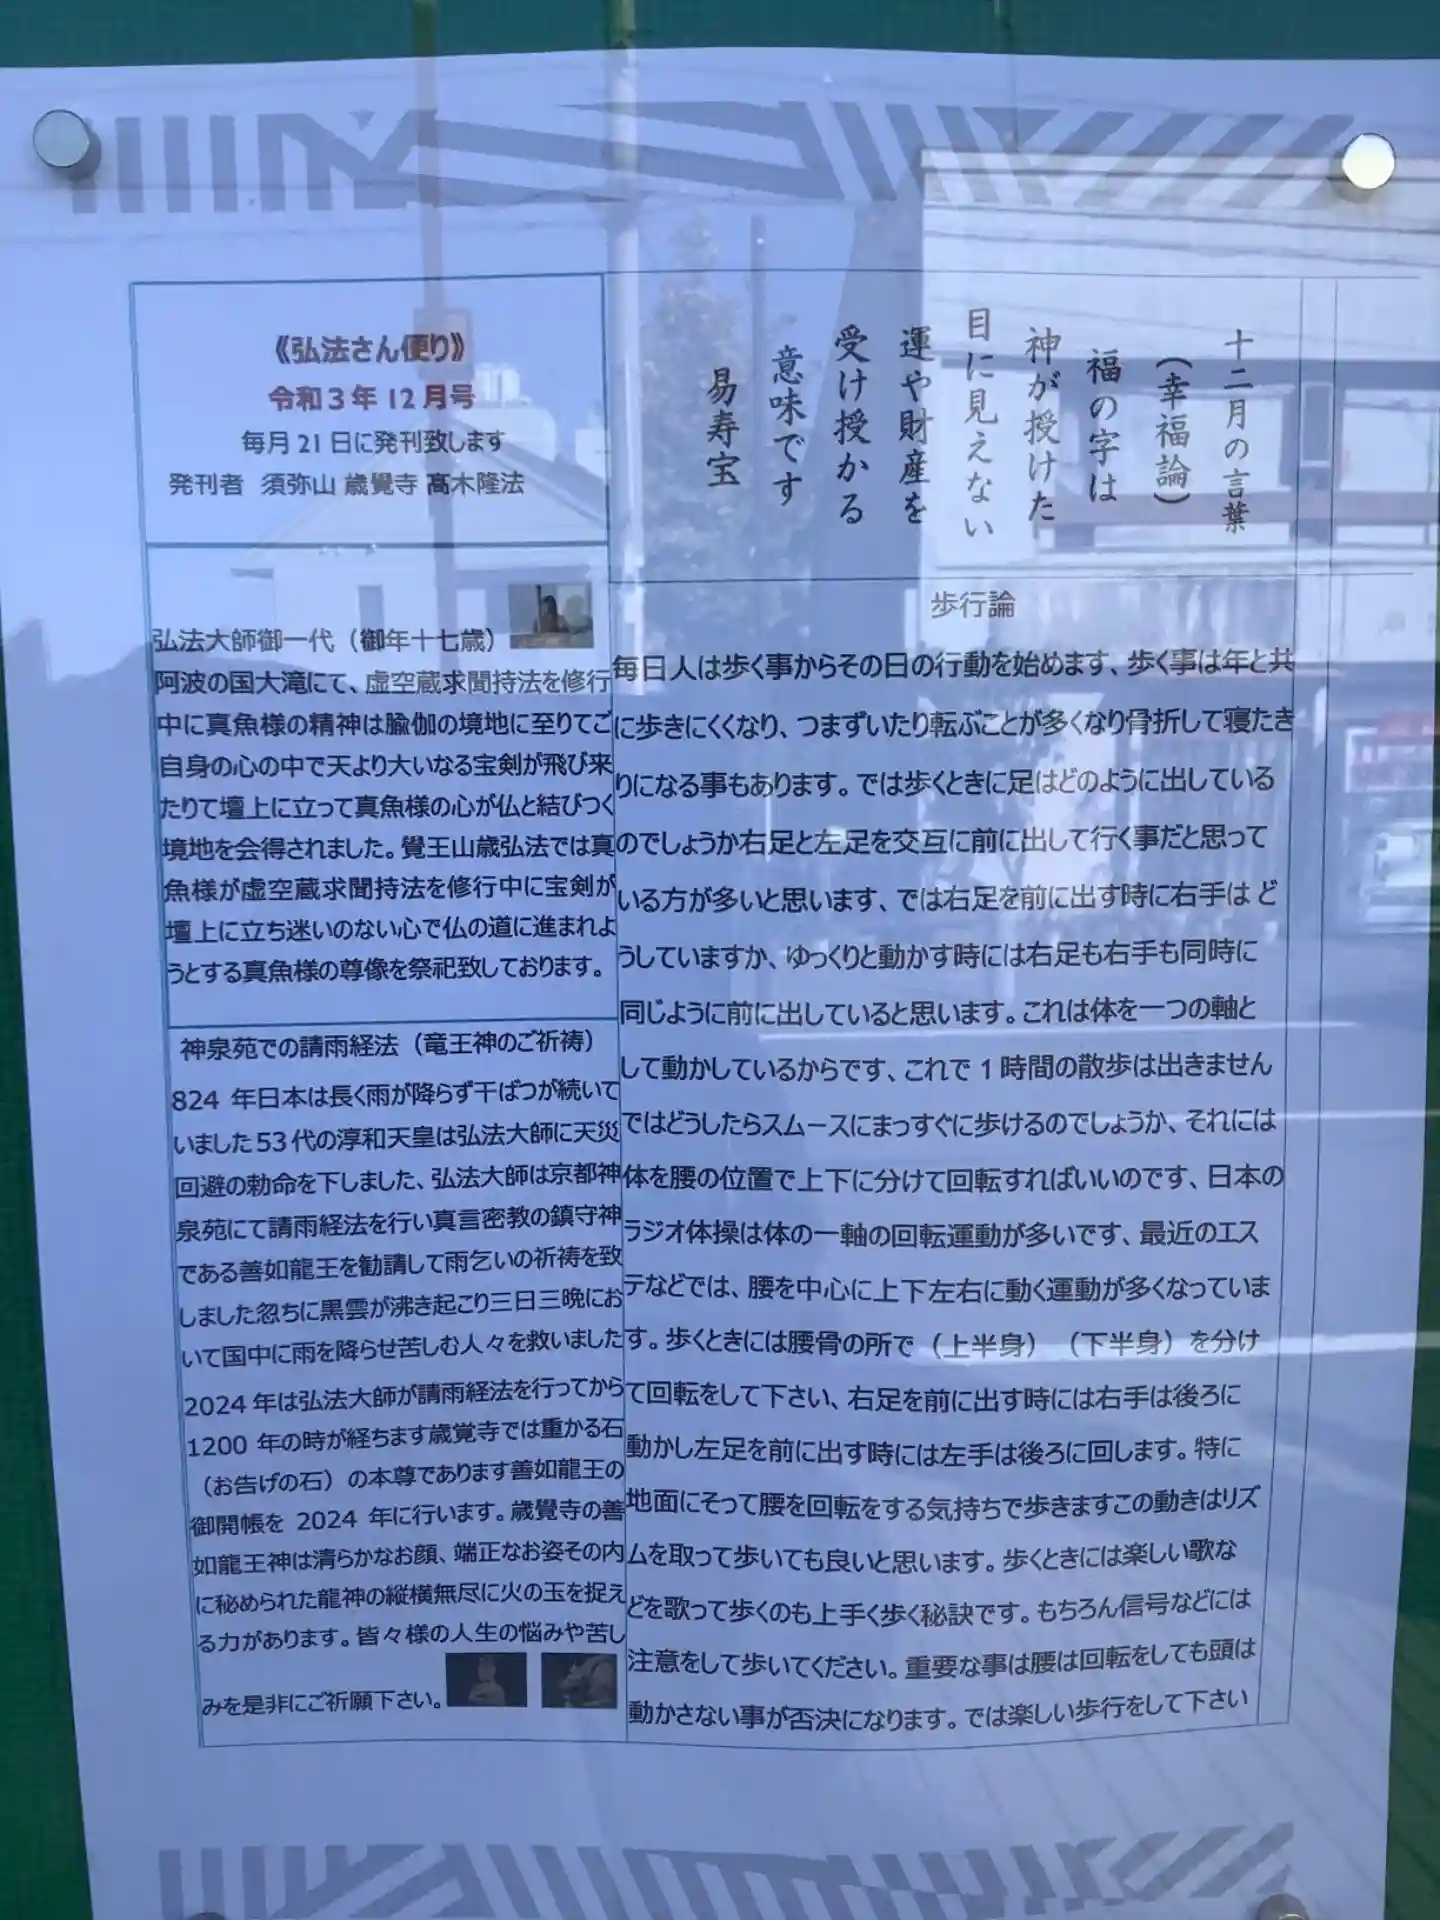 《弘法さん便り》
令和3年12月号
毎月21日に発刊致します
発刊者 須弥山 歳覺寺 髙木隆法
十二月の言葉
（幸福論）
福の字は
神が授けた
目に見えない
運や財産を
受け授かる
意味です
易寿宝
弘法大師御一代（御年十七歳）
阿波の国大滝にて、虚空蔵求聞持法を修行
中に真魚様の精神は腧伽の境地に至りてご
自身の心の中で天より大いなる宝剣が飛び来
たりて壇上に立って真魚様の心が仏と結びつく
境地を会得されました。覺王山歳弘法では真
魚様が虚空蔵求聞持法を修行中に宝剣が
壇上に立ち迷いのない心で仏の道に進まれよ
うとする真魚様の尊像を祭祀致しております。
神泉苑での請雨経法（竜王神のご祈祷）
824 年日本は長く雨が降らず干ばつが続いて
いました53代の淳和天皇は弘法大師に天災
回避の勅命を下しました、弘法大師は京都神
泉苑にて請雨経法を行い真言密教の鎮守神
である善如龍王を勧請して雨乞いの祈祷を致
しました忽ちに黒雲が沸き起こり三日三晩にお
いて国中に雨を降らせ苦しむ人々を救いました
2024年は弘法大師が請雨経法を行ってから
1200 年の時が経ちます歳覚寺では重かる石
（お告げの石）の本尊であります善如龍王の
御開帳を 2024 年に行います。歳覺寺の善
如龍王神は清らかなお顔、端正なお姿その内
に秘められた龍神の縦横無尽に火の玉を捉え
る力があります。皆々様の人生の悩みや苦し
みを是非にご祈願下さい。
歩行論
毎日人は歩く事からその日の行動を始めます、歩く事は年と共
に歩きにくくなり、つまずいたり転ぶことが多くなり骨折して寝たき
りになる事もあります。では歩くときに足はどのように出している
のでしょうか右足と左足を交互に前に出して行く事だと思って
いる方が多いと思います、では右足を前に出す時に右手は ど
うしていますか、ゆっくりと動かす時には右足も右手も同時に
同じように前に出していると思います。これは体を一つの軸と
して動かしているからです、これで 1 時間の散歩は出きません
ではどうしたらスムースにまっすぐに歩けるのでしょうか、それには
体を腰の位置で上下に分けて回転すればいいのです、日本の
ラジオ体操は体の一軸の回転運動が多いです、最近のエス
テなどでは、腰を中心に上下左右に動く運動が多くなっていま
す。歩くときには腰骨の所で（上半身）（下半身）を分け
て回転をして下さい、右足を前に出す時には右手は後ろに
動かし左足を前に出す時には左手は後ろに回します。特に
地面にそって腰を回転をする気持ちで歩きますこの動きはリズ
ムを取って歩いても良いと思います。歩くときには楽しい歌な
どを歌って歩くのも上手く歩く秘訣です。もちろん信号などには
注意をして歩いてください。重要な事は腰は回転をしても頭は
動かさない事が否決になります。では楽しい歩行をして下さい